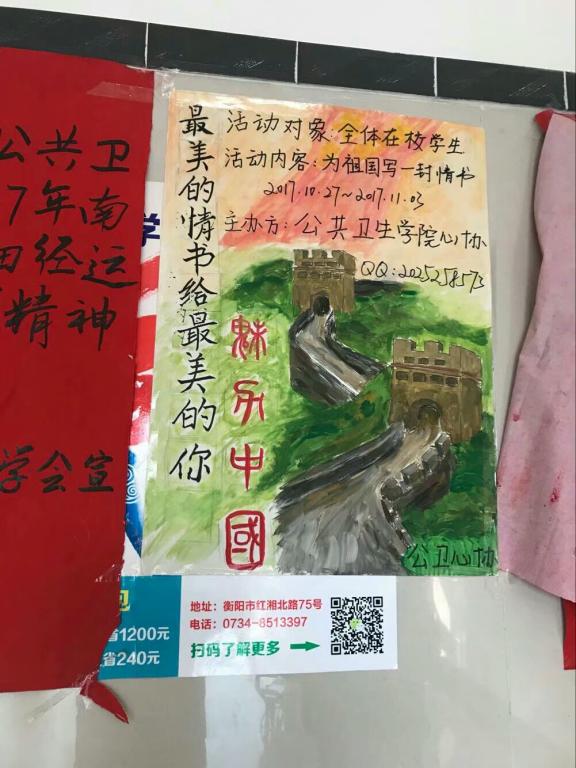 公共卫
7年南
田经运
精神
学会宣
学
最美的情书给最美的你
活动对象:全体在校学生
活动内容:为祖国写一封情书
2017.10.27~2017.11.03
主办方:公共卫生学院心协
QQ:2025258573
魅力中國
公卫心协
省1200元
省240元
地址：衡阳市红湘北路75号
电话：0734-8513397
扫码了解更多